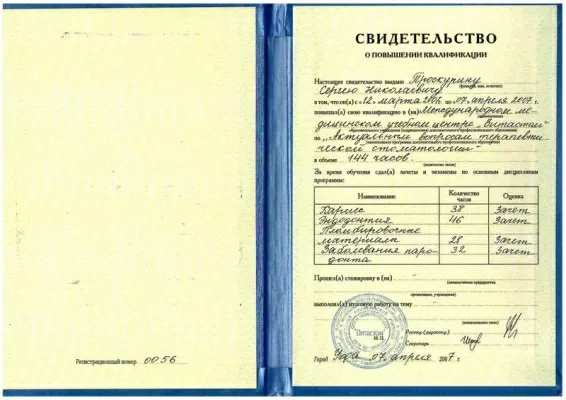 Регистрационный номер 0056
СВИДЕТЕЛЬСТВО
О ПОВЫШЕНИИ КВАЛИФИКАЦИИ
Настоящее свидетельство выдано Проскурину
Сергею Николаевичу
(фамилия, имя, отчество)
в том, что он(а) с «12» марта 2007г. по «07» апреля 2007 г.
повысил(а) свою квалификацию в (на) Международном ме-
дицинском учебном центре „Витастом"
по „Актуальным вопросам терапевти-
ческой стоматологии"
в объеме 144 часов.
(количество часов)
За время обучения сдал(а) зачеты и экзамены по основным дисциплинам
программы:
Наименование Количество часов Оценка
Кариес 38 Зачёт
Эндодонтия 46 Зачёт
Пломбировочные
материалы 28 Зачёт
Заболевания паро- 32 Зачёт
донта
Прошел(а) стажировку в (на)
(наименование предприятия,
организации, учреждения)
выполнил(а) итоговую работу на тему
(наименование темы)
Витастом
М.П.
Ректор (директор)
Секретарь
Город Уфа 07 апреля 2007 г.